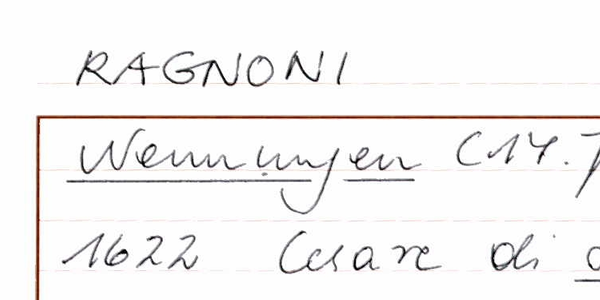 RAGNONI
Nennungen (14.
1622 Cesare di